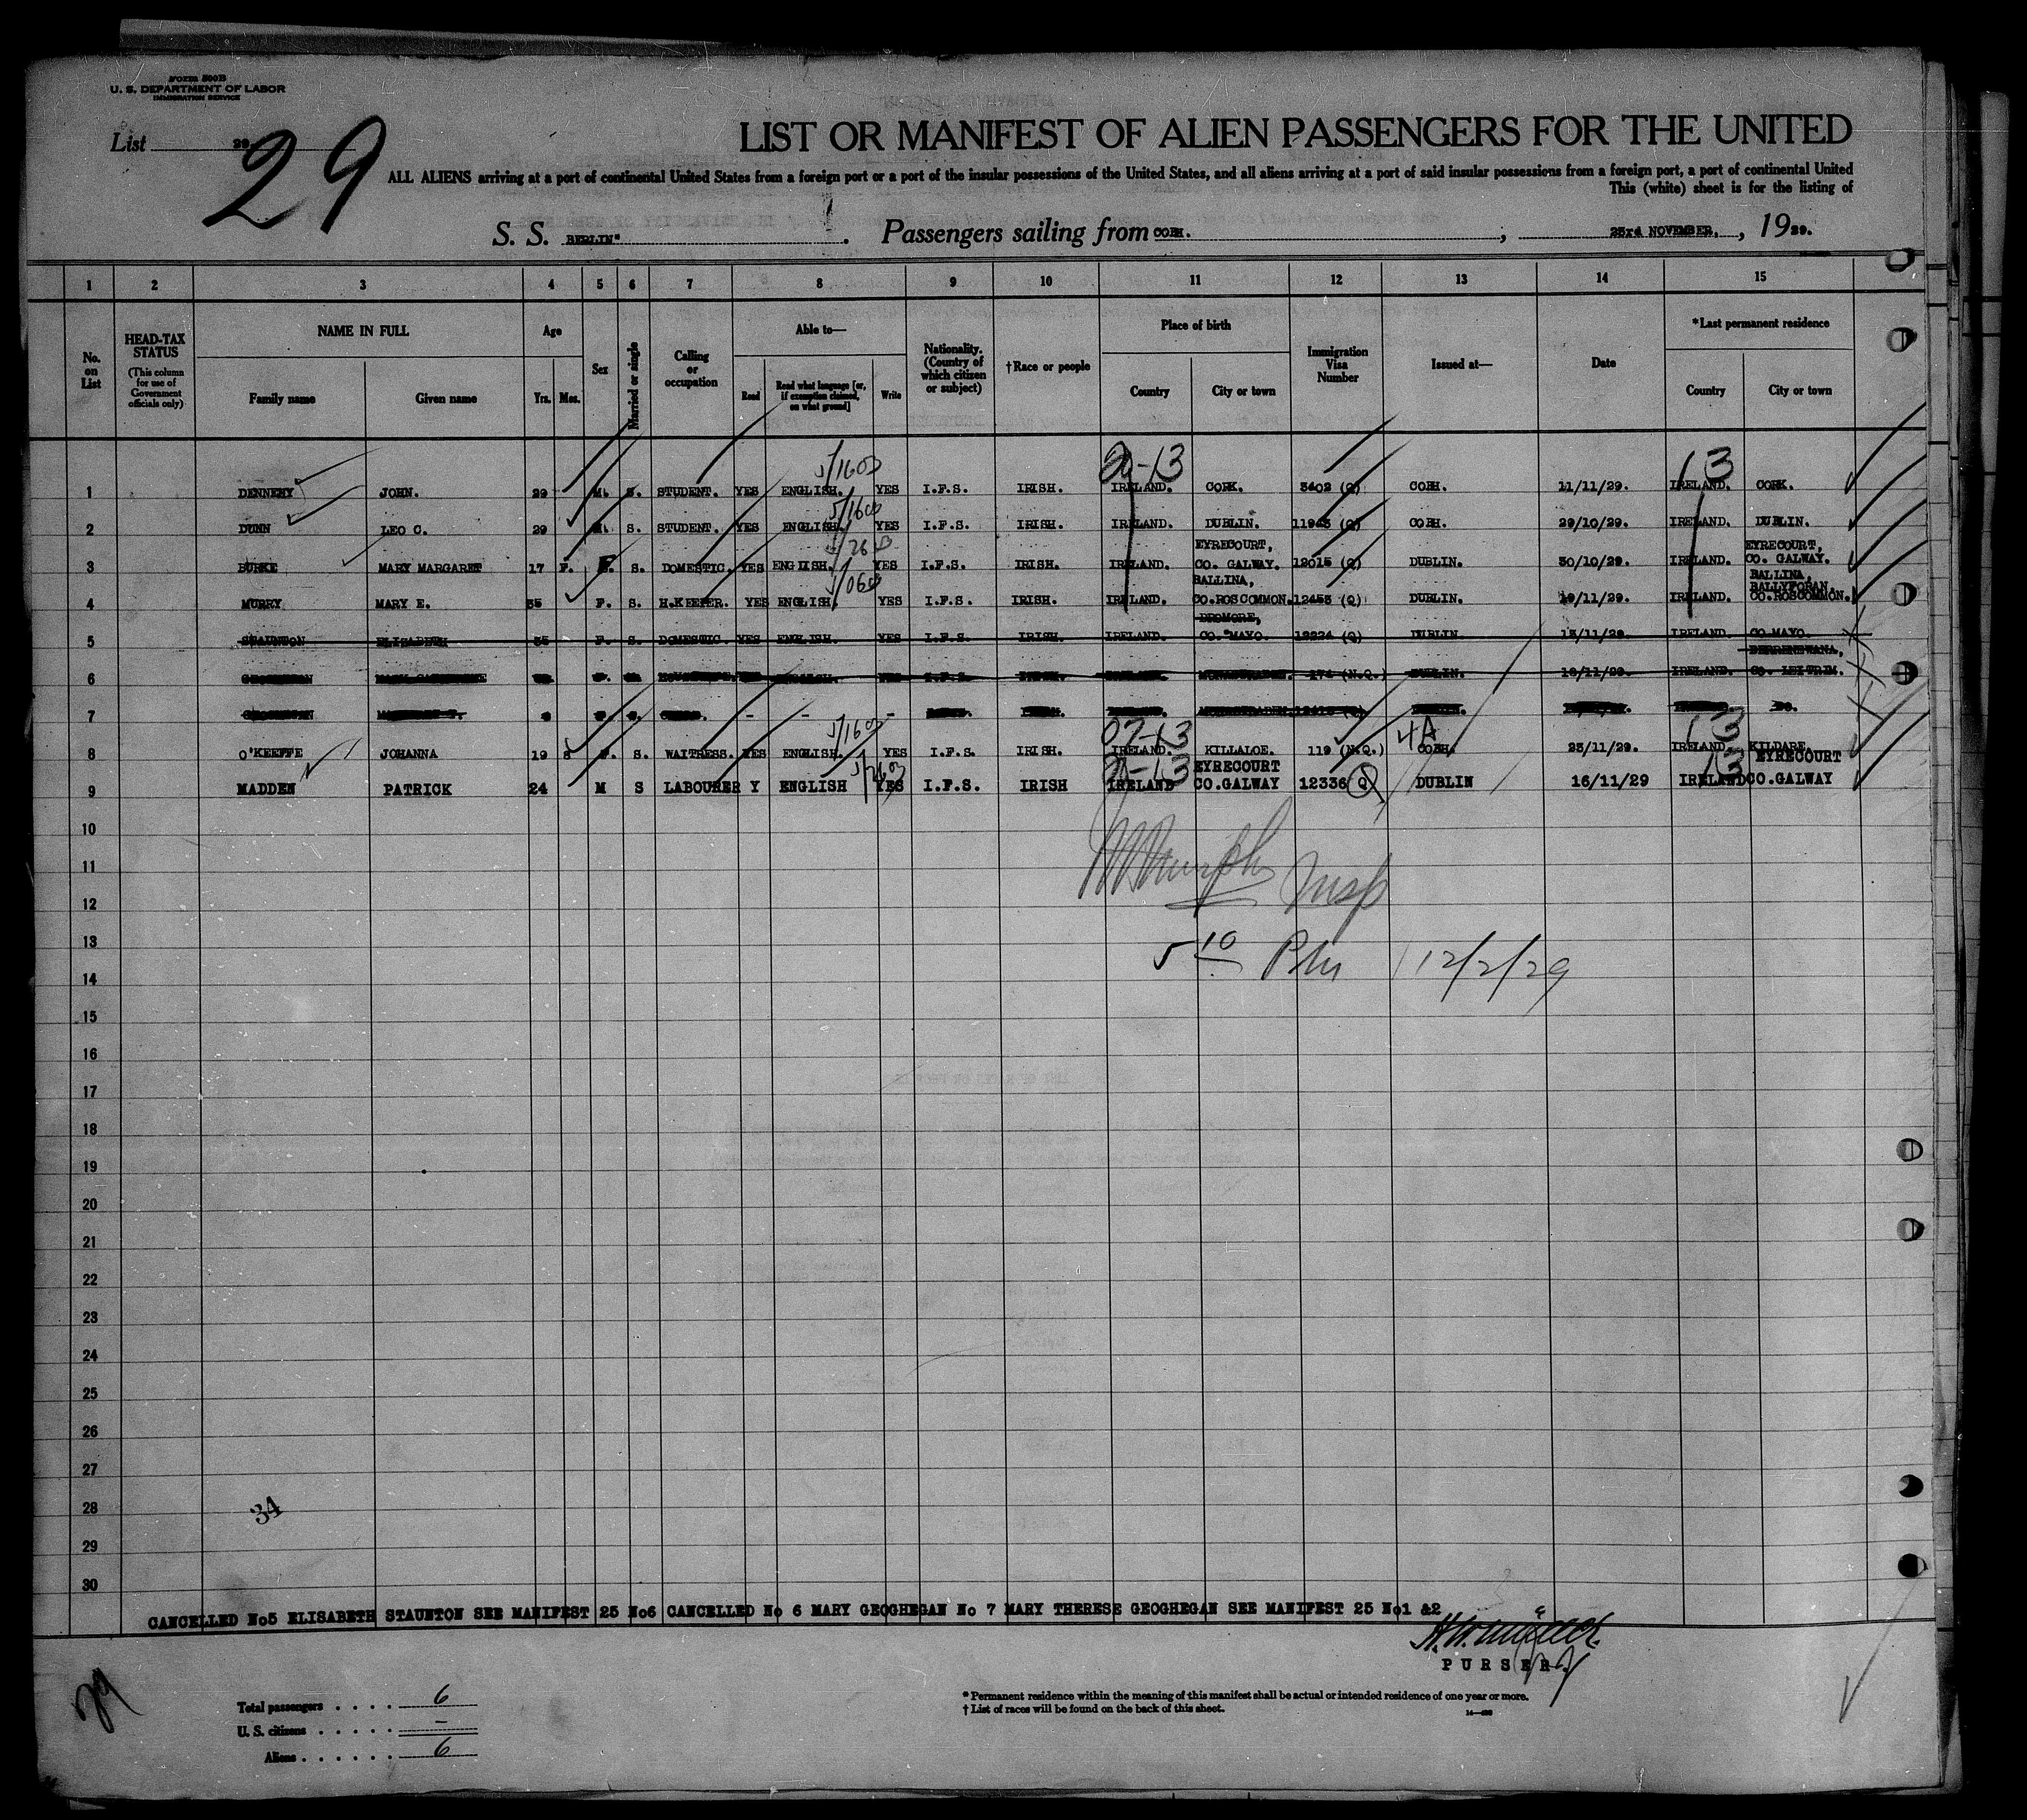 Form 500B
U. S. DEPARTMENT OF LABOR
IMMIGRATION SERVICE
List 29
29
LIST OR MANIFEST OF ALIEN PASSENGERS FOR THE UNITED
ALL ALIENS arriving at a port of continental United States from a foreign port or a port of the insular possessions of the United States, and all aliens arriving at a port of said insular possessions from a foreign port, a port of continental United
This (white) sheet is for the listing of
S. S. BERLIN" . Passengers sailing from COBH. ; 23rd NOVEMBER, , 1929.
1 2 3 4 5 6 7 8 9 10 11 12 13 14 15
No. on List
HEAD-TAX STATUS (This column for use of Government officials only)
NAME IN FULL Family name Given name
Age Yrs. Mos.
Sex
Married or single
Calling or occupation
Able to— Read Read what language [or, if exemption claimed, on what ground] Write
Nationality. (Country of which citizen or subject)
†Race or people
Place of birth Country City or town
Immigration Visa Number
Issued at—
Date
*Last permanent residence Country City or town
5/1603 13
1 DENNEHY JOHN. 29 M. S. STUDENT. YES ENGLISH. YES I.F.S. IRISH. IRELAND. CORK. 3402 (Q) COBH. 11/11/29. IRELAND. CORK.
2 DUNN LEO C. 29 M. S. STUDENT. YES ENGLISH. YES I.F.S. IRISH. IRELAND. DUBLIN. (Q) COBH. 29/10/29. IRELAND. DUBLIN.
EYRECOURT, EYRECOURT,
3 BURKE MARY MARGARET 17 F. S. DOMESTIC. YES ENGLISH. YES I.F.S. IRISH. IRELAND. CO. GALWAY. 12015 (Q) DUBLIN. 30/10/29. IRELAND. CO. GALWAY.
BALLINA, BALLINA, BALLYFORAN.
4 MURRY MARY E. 35 F. S. H.KEEPER. YES ENGLISH. YES I.F.S. IRISH. IRELAND. CO.ROSCOMMON. 12453 (Q) DUBLIN. 19/11/29. IRELAND. CO.ROSCOMMON.
DROMORE,
5 STAUNTON ELISABETH 35 F. S. DOMESTIC. YES ENGLISH. YES I.F.S. IRISH. IRELAND. CO. MAYO. 12224 (Q) DUBLIN 13/11/29. IRELAND. CO MAYO.
6 I.F.S. 174 (N.Q.) DUBLIN. IRELAND. CO. LEITRIM.
7 - - -
07-13 13
8 O'KEEFFE JOHANNA 19 8 F. S. WAITRESS. YES ENGLISH. YES I.F.S. IRISH. IRELAND. KILLALOE. 119 (N.Q.) 4A COBH. 23/11/29. IRELAND. KILDARE.
EYRECOURT 13 EYRECOURT
9 MADDEN PATRICK 24 M S LABOURER Y ENGLISH YES I.F.S. IRISH IRELAND CO.GALWAY 12336 Q DUBLIN 16/11/29 IRELAND CO.GALWAY
10
11
Murphy Insp
12
13
5 10 PM 12/2/29
14
15
16
17
18
19
20
21
22
23
24
25
26
27
28
34
29
30
CANCELLED No5 ELISABETH STAUNTON SEE MANIFEST 25 No6 CANCELLED No 6 MARY GEOGHEGAN No 7 MARY THERESE GEOGHEGAN SEE MANIFEST 25 No1 &2
PURSER.
29
Total passengers . . . . 6
U. S. citizens . . . . . –
Aliens . . . . . . 6
* Permanent residence within the meaning of this manifest shall be actual or intended residence of one year or more.
† List of races will be found on the back of this sheet.